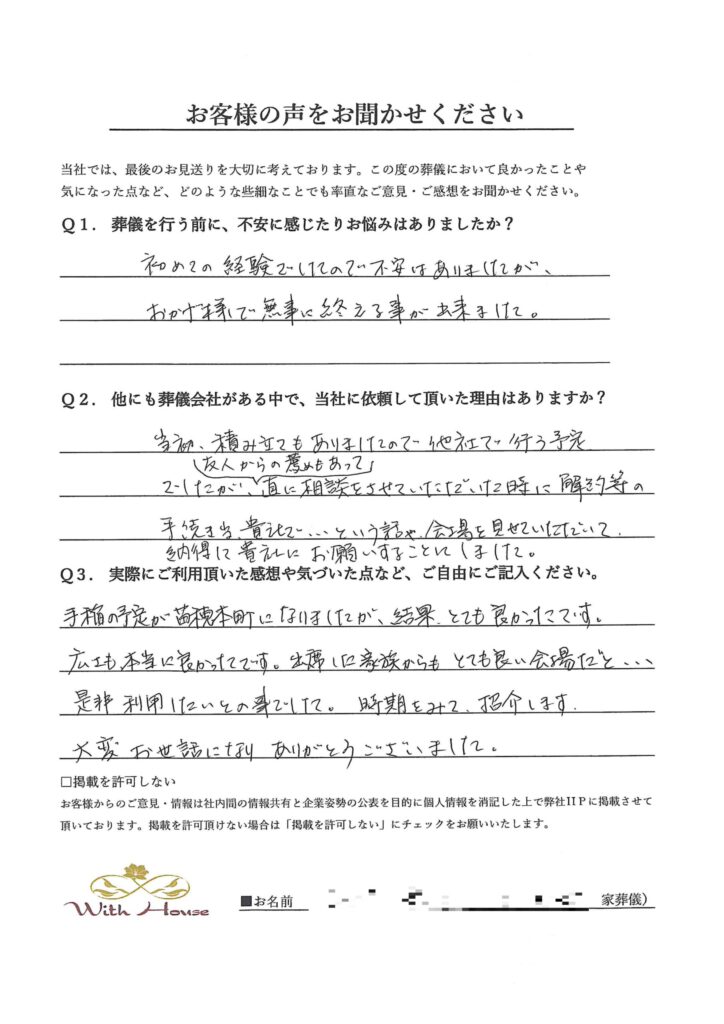 お客様の声をお聞かせください
当社では、最後のお見送りを大切に考えております。この度の葬儀において良かったことや
気になった点など、どのような些細なことでも率直なご意見・ご感想をお聞かせください。
Ｑ１．葬儀を行う前に、不安に感じたりお悩みはありましたか？
初めての経験でしたので不安はありましたが、
おかげ様で無事に終える事が出来ました。
Ｑ２．他にも葬儀会社がある中で、当社に依頼して頂いた理由はありますか？
当初、積み立てもありましたので他社で行う予定
友人からの薦めもあって
でしたが、直に相談をさせていただいた時に解約等の
手続き当、貴社で…という話や、会場を見せていただいて、
納得して貴社にお願いすることにしました。
Ｑ３．実際にご利用頂いた感想や気づいた点など、ご自由にご記入ください。
手稲の予定が苗穂本町になりましたが、結果、とても良かったです。
広さも、本当に良かったです。出席した家族からもとても良い会場だと…
是非利用したいとの事でした。時期をみて、紹介します。
大変お世話になりありがとうございました。
□掲載を許可しない
お客様からのご意見・情報は社内間の情報共有と企業姿勢の公表を目的に個人情報を消記した上で弊社HPに掲載させて
頂いております。掲載を許可頂けない場合は「掲載を許可しない」にチェックをお願いいたします。
With House
■お名前 家葬儀）